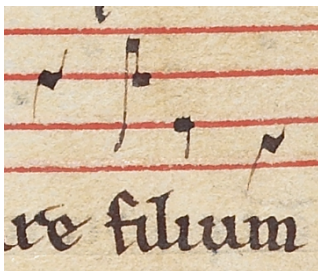 re filium